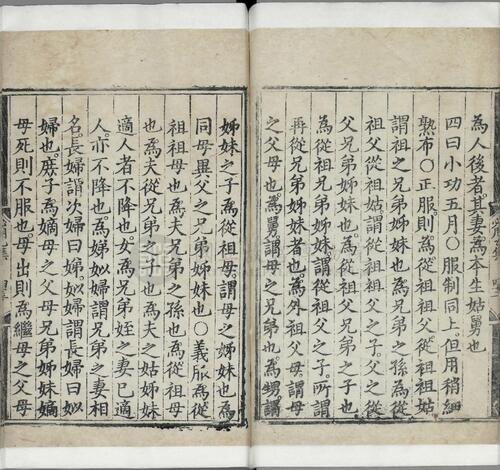 為人後者其妻為本生姑舅也
四曰小功五月○服制同上但用稍細
熟布○正服則為從祖祖父從祖祖姑
謂祖之兄弟姊妹也為兄弟之孫為從
祖父從祖姑謂從祖祖父之子父之從
父兄弟姊妹也為從父兄弟之子也
為從祖兄弟姊妹謂從祖父之子所謂
再從兄弟姊妹者也為外祖父母謂母
之父母也為舅謂母之兄弟也為甥謂
姊妹之子也為從母謂母之姊妹也為
同母異父之兄弟姊妹也○義服為從
祖祖母也為夫兄弟之孫也為從祖母
也為夫從兄弟之子也為夫之姑姊妹
適人者不降也女為兄弟姪之妻已適
人亦不降也為娣姒婦謂兄弟之妻相
名長婦謂次婦曰娣娣婦謂長婦曰姒
婦也庶子為嫡母之父母兄弟姊妹嫡
母死則不服也母出則為繼母之父母